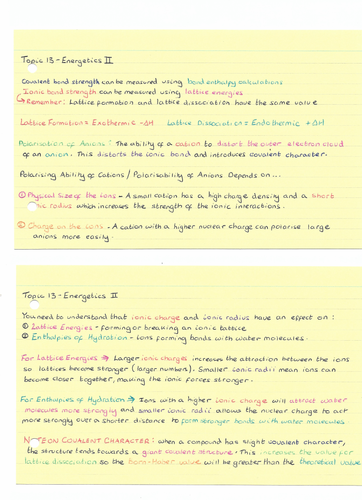 Topic 13 - Energetics II
Covalent bond strength can be measured using bond enthalpy calculations
Ionic bond strength can be measured using lattice energies
Remember: Lattice formation and lattice dissociation have the same value
Lattice Formation = Exothermic -ΔH Lattice Dissociation = Endothermic +ΔH
Polarisation of Anions: The ability of a cation to distort the outer electron cloud
of an anion. This distorts the ionic bond and introduces covalent character.
Polarising Ability of Cations / Polarisability of Anions Depends on...
① Physical Size of the ions - A small cation has a high charge density and a short
ionic radius which increases the strength of the ionic interactions.
② Charge on the ions - A cation with a higher nuclear charge can polarise large
anions more easily.
Topic 13 - Energetics II
You need to understand that ionic charge and ionic radius have an effect on:
① Lattice Energies - forming or breaking an ionic lattice
② Enthalpies of Hydration - ions forming bonds with water molecules
For Lattice Energies → Larger ionic charges increases the attraction between the ions
so lattices become stronger (larger numbers). Smaller ionic radii mean ions can
become closer together, making the ionic forces stronger.
For Enthalpies of Hydration → Ions with a higher ionic charge will attract water
molecules more strongly and smaller ionic radii allows the nuclear charge to act
more strongly over a shorter distance to form stronger bonds with water molecules
NOTE ON COVALENT CHARACTER: when a compound has slight covalent character,
the structure tends towards a giant covalent structure. This increases the value for
lattice dissociation so the Born-Haber value will be greater than the theoretical value